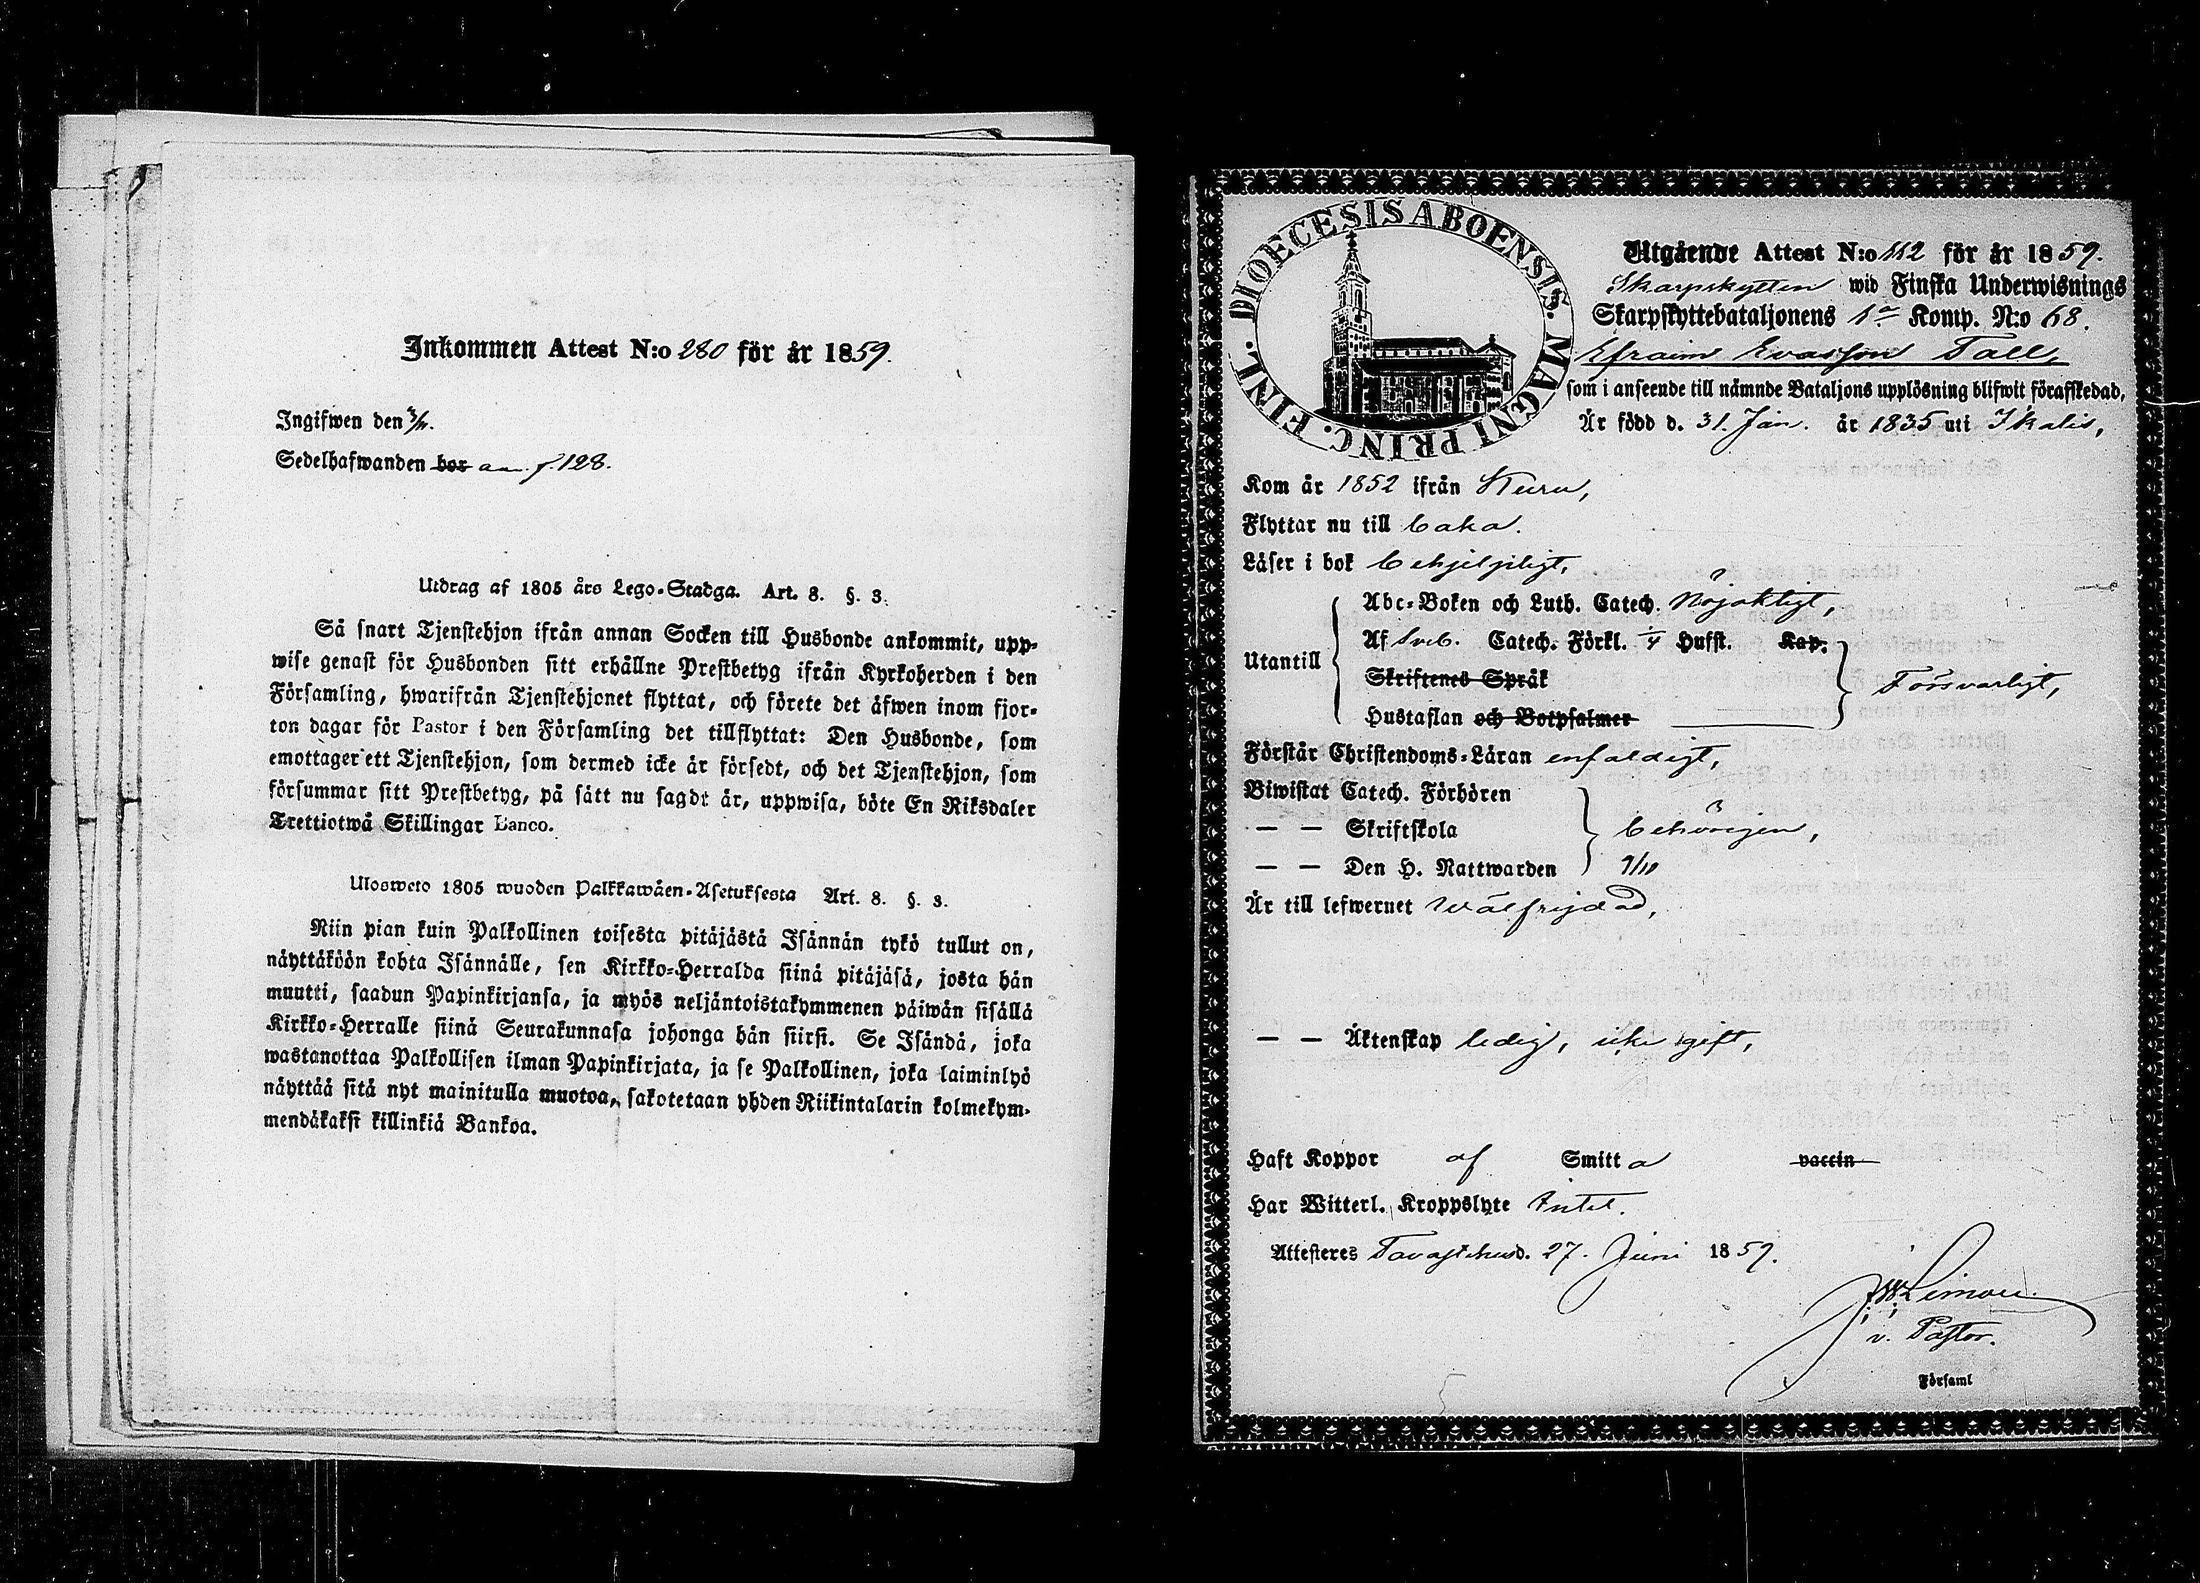 Inkommen Attest N:o 280 för år 1859.
Ingifwen den 3/11.
Sedelhafwanden bor an. f. 128.
Utdrag af 1805 års Lego-Stadga. Art. 8. §. 3.
Så snart Tjenstehjon ifrån annan Socken till Husbonde ankommit, upp-
wise genast för Husbonden sitt erhållne Prestbetyg ifrån Kyrkoherden i den
Församling, hwarifrån Tjenstehjonet flyttat, och förete det äfwen inom fjor-
ton dagar för Pastor i den Församling det tillflyttat: Den Husbonde, som
emottager ett Tjenstehjon, som dermed icke är försedt, och det Tjenstehjon, som
försummar sitt Prestbetyg, på sätt nu sagdt är, uppwisa, böte En Riksdaler
Trettiotwå Skillingar Banco.
Ulosweto 1805 wuoden Palkkawäen-Asetuksesta Art. 8. §. 3.
Niin pian kuin Palkollinen toisesta pitäjästä Isännän tykö tullut on,
näyttäköön kohta Isännälle, sen Kirkko-Herralda siinä pitäjäsä, josta hän
muutti, saadun Papinkirjansa, ja myös neljäntoistakymmenen päiwän sisällä
Kirkko-Herralle siinä Seurakunnasa johonga hän siirsi. Se Isändä, joka
wastanottaa Palkollisen ilman Papinkirjata, ja se Palkollinen, joka laiminlyö
näyttää sitä nyt mainitulla muotoa, sakotetaan yhden Riikintalarin kolmekym-
mendäkaksi killinkiä Bankoa.
DIOECESIS ABOENSIS. MAGNI PRINC. FINL.
Utgående Attest N:o 112 för år 1859.
Skarpskytten wid Finska Underwisnings
Skarpskyttebataljonens 1a Komp. N:o 68.
Efraim Evasson Tall,
som i anseende till nämnde Bataljons upplösning blifwit förafskedad,
Är född d. 31. Jan. år 1835 uti Ikalis,
Kom år 1852 ifrån Kuru,
Flyttar nu till baka.
Läser i bok behjelpligt,
Abc-Boken och Luth. Catech. Nöjaktigt,
Utantill
Af Sveb. Catech. Förkl. Hufst. Kap.
Skriftenes Språk
Försvarligt,
Hustaflan och Botpsalmer
Förstår Christendoms-Läran enfaldigt,
Biwistat Catech. Förhören
— — Skriftskola
behörigen,
— — Den H. Nattwarden
Är till lefwernet wälfrejdad,
— — Äktenskap ledig, icke gift,
Haft Koppor af Smitta vaccin
Har Witterl. Kroppslyte Intet.
Attesteres Tavastehus d. 27. Juni 1859.
v. Pastor.
Församl